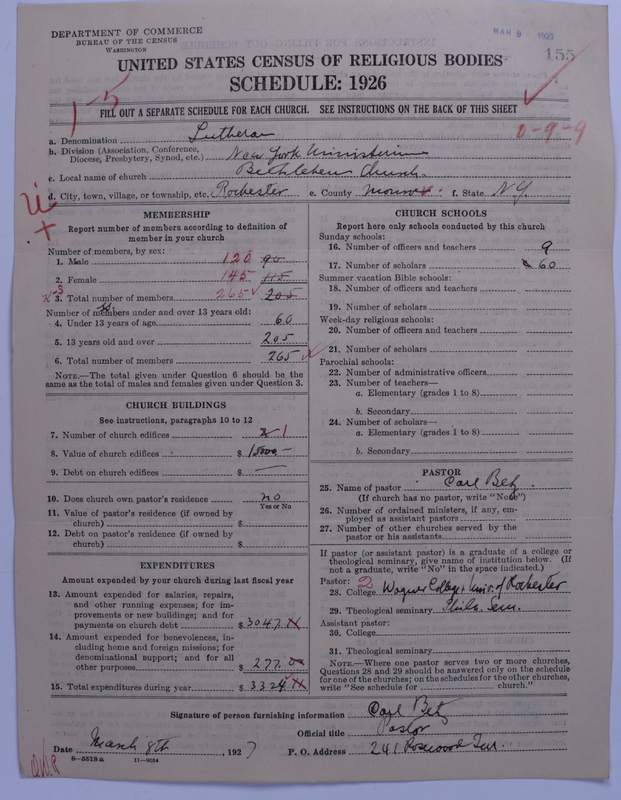 DEPARTMENT OF COMMERCE
BUREAU OF THE CENSUS
WASHINGTON
MAR 9 1927
155
UNITED STATES CENSUS OF RELIGIOUS BODIES
SCHEDULE: 1926
1-5
FILL OUT A SEPARATE SCHEDULE FOR EACH CHURCH. SEE INSTRUCTIONS ON THE BACK OF THIS SHEET
0-9-9
a. Denomination Lutheran
b. Division (Association, Conference, Diocese, Presbytery, Synod, etc.) New York Ministerium
c. Local name of church Bethlehem Church
d. City, town, village, or township, etc. Rochester e. County Monroe f. State N.Y.
MEMBERSHIP
Report number of members according to definition of member in your church
Number of members, by sex:
1. Male 120 90
2. Female 145 115
3. Total number of members 265 205
Number of members under and over 13 years old:
4. Under 13 years of age 60
5. 13 years old and over 205
6. Total number of members 265
NOTE.—The total given under Question 6 should be the same as the total of males and females given under Question 3.
CHURCH BUILDINGS
See instructions, paragraphs 10 to 12
7. Number of church edifices 1
8. Value of church edifices $ 15000 —
9. Debt on church edifices $ —
10. Does church own pastor's residence no
Yes or No
11. Value of pastor's residence (if owned by church) $
12. Debt on pastor's residence (if owned by church) $
EXPENDITURES
Amount expended by your church during last fiscal year
13. Amount expended for salaries, repairs, and other running expenses; for improvements or new buildings; and for payments on church debt $ 3047
14. Amount expended for benevolences, including home and foreign missions; for denominational support; and for all other purposes $ 277
15. Total expenditures during year $ 3324
CHURCH SCHOOLS
Report here only schools conducted by this church
Sunday schools:
16. Number of officers and teachers 9
17. Number of scholars 60
Summer vacation Bible schools:
18. Number of officers and teachers
19. Number of scholars
Week-day religious schools:
20. Number of officers and teachers
21. Number of scholars
Parochial schools:
22. Number of administrative officers
23. Number of teachers—
a. Elementary (grades 1 to 8)
b. Secondary
24. Number of scholars—
a. Elementary (grades 1 to 8)
b. Secondary
PASTOR
25. Name of pastor Carl Betz
(If church has no pastor, write "None")
26. Number of ordained ministers, if any, employed as assistant pastors
27. Number of other churches served by the pastor or his assistants
If pastor (or assistant pastor) is a graduate of a college or theological seminary, give name of institution below. (If not a graduate, write "No" in the space indicated.)
Pastor: 2
28. College Wagner College, Univ. of Rochester
29. Theological seminary Phila. Sem.
Assistant pastor:
30. College
31. Theological seminary
NOTE.—Where one pastor serves two or more churches, Questions 28 and 29 should be answered only on the schedule for one of the churches; on the schedules for the other churches, write "See schedule for church."
Signature of person furnishing information Carl Betz
Official title Pastor
Date March 8th, 1927 P. O. Address 241 Rosewood Terr.
8—5518 a 11—9054